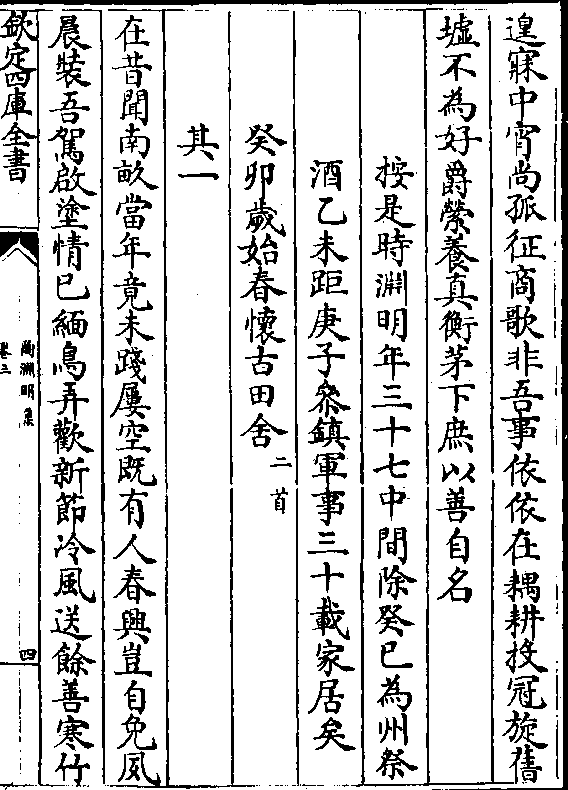 遑寐中宵尚孤征商歌非吾事依依在耦耕投冠旋舊
墟不為好爵縈養真衡茅下庶以善自名
按是時淵明年三十七中間除癸巳為州祭
酒乙未距庚子叅鎮軍事三十載家居矣
癸卯歲始春懷古田舍二首
其一
在昔聞南畝當年竟未踐屢空既有人春興豈自免夙
晨裝吾駕啟塗情已緬鳥弄歡新節冷風送餘善寒竹
欽定四庫全書
陶淵明集
卷三
四